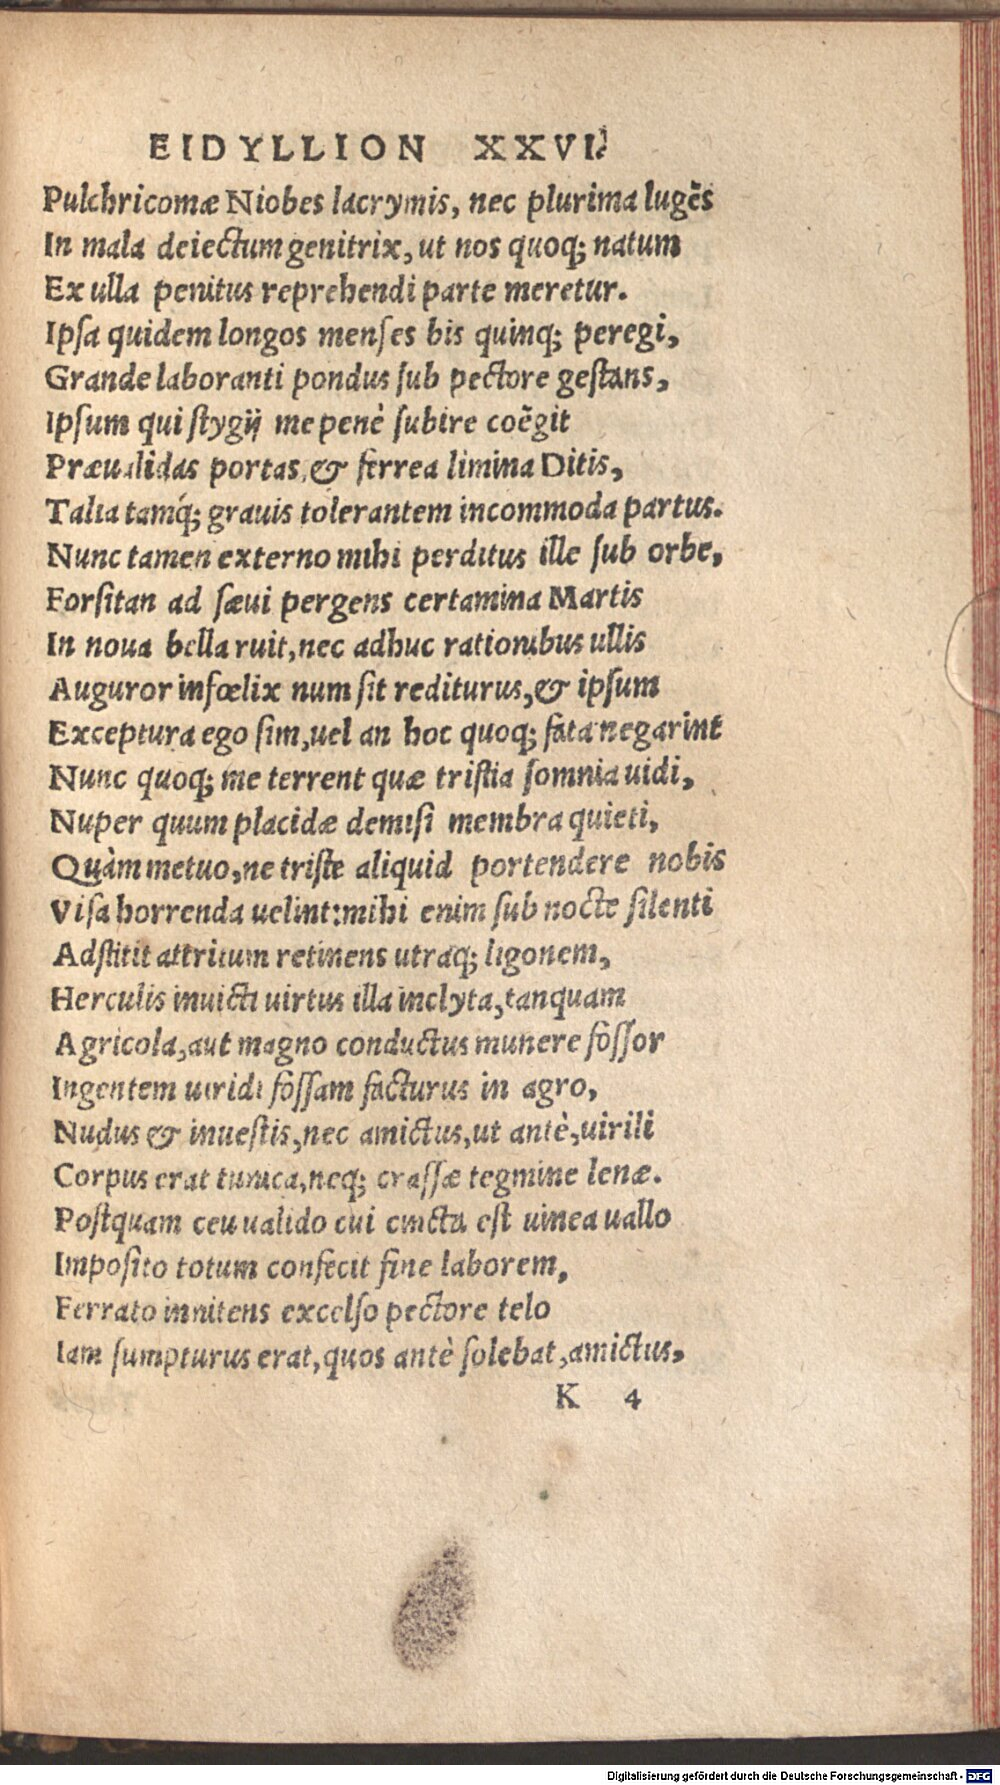 EIDYLLION XXVI.
Pulchricomæ Niobes lacrymis, nec plurima lugẽs
In mala deiectum genitrix, ut nos quoq; natum
Ex ulla penitus reprehendi parte meretur.
Ipſa quidem longos menſes bis quinq; peregi,
Grande laboranti pondus ſub pectore geſtans,
Ipſum qui ſtygij me penè ſubire coẽgit
Præualidas portas, & ferrea limina Ditis,
Talia tamq́; grauis tolerantem incommoda partus.
Nunc tamen externo mihi perditus ille ſub orbe,
Forſitan ad ſæui pergens certamina Martis
In noua bella ruit, nec adhuc rationibus ullis
Auguror infœlix num ſit rediturus, & ipſum
Exceptura ego ſim, uel an hoc quoq; fata negarint
Nunc quoq; me terrent quæ triſtia ſomnia uidi,
Nuper quum placidæ demiſi membra quieti,
Quàm metuo, ne triſte aliquid portendere nobis
Viſa horrenda uelint: mihi enim ſub nocte ſilenti
Adſtitit attritum retinens utraq; ligonem,
Herculis inuicti uirtus illa inclyta, tanquam
Agricola, aut magno conductus munere foſſor
Ingentem uiridi foſſam facturus in agro,
Nudus & inueſtis, nec amictus, ut antè, uirili
Corpus erat tunica, neq; craſſæ tegmine lenæ.
Poſtquam ceu ualido cui cincta eſt uinea uallo
Impoſito totum confecit fine laborem,
Ferrato innitens excelſo pectore telo
Iam ſumpturus erat, quos antè ſolebat, amictus,
K 4
Digitalisierung gefördert durch die Deutsche Forschungsgemeinschaft - DFG